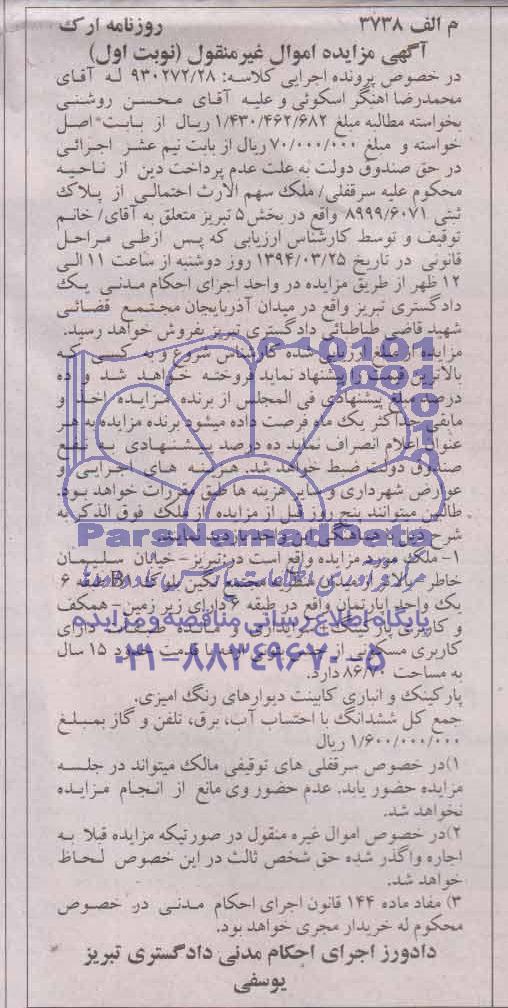 م الف ۳۷۳۸ روزنامه ارک
آگهی مزایده اموال غیرمنقول (نوبت اول)
در خصوص پرونده اجرایی کلاسه: ۹۳۰۲۷۲/۲۸ له آقای
محمدرضا اهنگر اسکوئی و علیه آقای محسن روشنی
بخواسته مطالبه مبلغ ۱/۴۳۰/۴۶۲/۶۸۲ ریال از بابت اصل
خواسته و مبلغ ۷۰/۰۰۰/۰۰۰ ریال از بابت نیم عشر اجرائی
در حق صندوق دولت به علت عدم پرداخت دین از ناحیه
محکوم علیه سرقفلی/ ملک سهم الارث احتمالی از پلاک
ثبتی ۸۹۹۹/۶۰۷۱ واقع در بخش ۵ تبریز متعلق به آقای/ خانم
توقیف و توسط کارشناس ارزیابی که پس ازطی مراحل
قانونی در تاریخ ۱۳۹۴/۰۳/۲۵ روز دوشنبه از ساعت ۱۱ الی
۱۲ ظهر از طریق مزایده در واحد اجرای احکام مدنی یک
دادگستری تبریز واقع در میدان آذربایجان مجتمع قضائی
شهید قاضی طباطبائی دادگستری تبریز بفروش خواهد رسید.
مزایده از مبلغ ارزیابی شده کارشناس شروع و به کسی که
بالاترین قیمت را پیشنهاد نماید فروخته خواهد شد و ده
درصد مبلغ پیشنهادی فی المجلس از برنده مزایده اخذ و
مابقی حداکثر یک ماه فرصت داده میشود برنده مزایده به هر
عنوان اعلام انصراف نماید ده درصد پیشنهادی به نفع
صندوق دولت ضبط خواهد شد. هزینه های اجرایی و
عوارض شهرداری و سایر هزینه ها طبق مقررات خواهد بود.
طالبین میتوانند پنج روز قبل از مزایده از ملک فوق الذکر به
شرح ذیل با هماهنگی این واحد بازدید نمایند.
۱- ملک مورد مزایده واقع است در: تبریز- خیابان سلیمان
خاطر بالاتر از میدان مجتمع نگین بلوک B۱ طبقه ۶
یک واحد اپارتمان واقع در طبقه ۶ دارای زیر زمین- همکف
و کاربری پارکینگ + لابی و مانده طبقات دارای
کاربری مسکونی از قدمت حدود ۱۵ سال
به مساحت ۸۶/۷۰ دارد.
پارکینک و انباری کابینت دیوارهای رنگ امیزی.
جمع کل ششدانگ با احتساب آب، برق، تلفن و گاز بمبلغ
۱/۶۰۰/۰۰۰/۰۰۰ ریال
۱)در خصوص سرقفلی های توقیفی مالک میتواند در جلسه
مزایده حضور یابد. عدم حضور وی مانع از انجام مزایده
نخواهد شد.
۲)در خصوص اموال غیره منقول در صورتیکه مزایده قبلا به
اجاره واگذر شده حق شخص ثالث در این خصوص لحاظ
خواهد شد.
۳) مفاد ماده ۱۴۴ قانون اجرای احکام مدنی در خصوص
محکوم له خریدار مجری خواهد بود.
دادورز اجرای احکام مدنی دادگستری تبریز
یوسفی
ParsNamadData
پایگاه اطلاع رسانی مناقصه و مزایده
۰۲۱-۸۸۳۴۹۶۷۰-۵